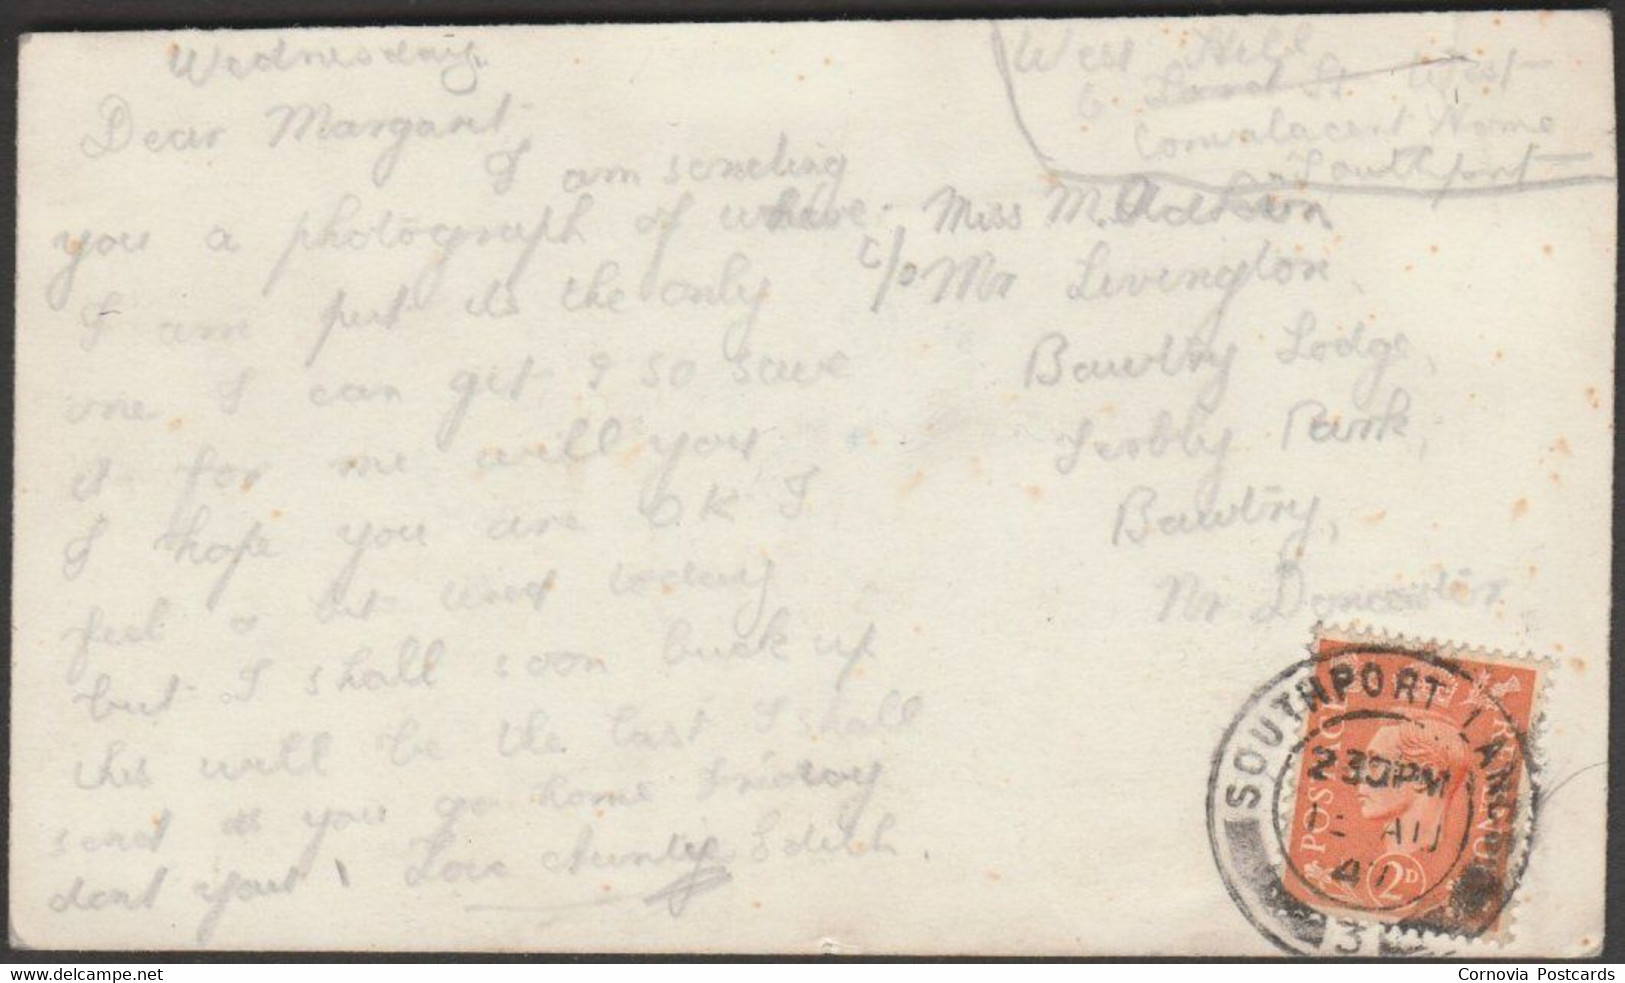 Wednesday.
Dear Margaret,
I am sending
you a photograph of where
I am put its the only
one I can get & so save
it for me will you
I hope you are O.K I
feel a bit tired today
but I shall soon buck up
this will be the last I shall
send as you go home Friday
dont you! Love Aunty Edith.
West Hill
6 Lord St West
Convalacent Home
Southport
Miss M.
c/o Mr Livington
Bawtry Lodge,
Bank,
Bawtry,
Nr Doncaster
SOUTHPORT LANCS
2 30 PM
AU
3
POSTAGE
REVENUE
2D
delcampe.net
Cornovia Postcards